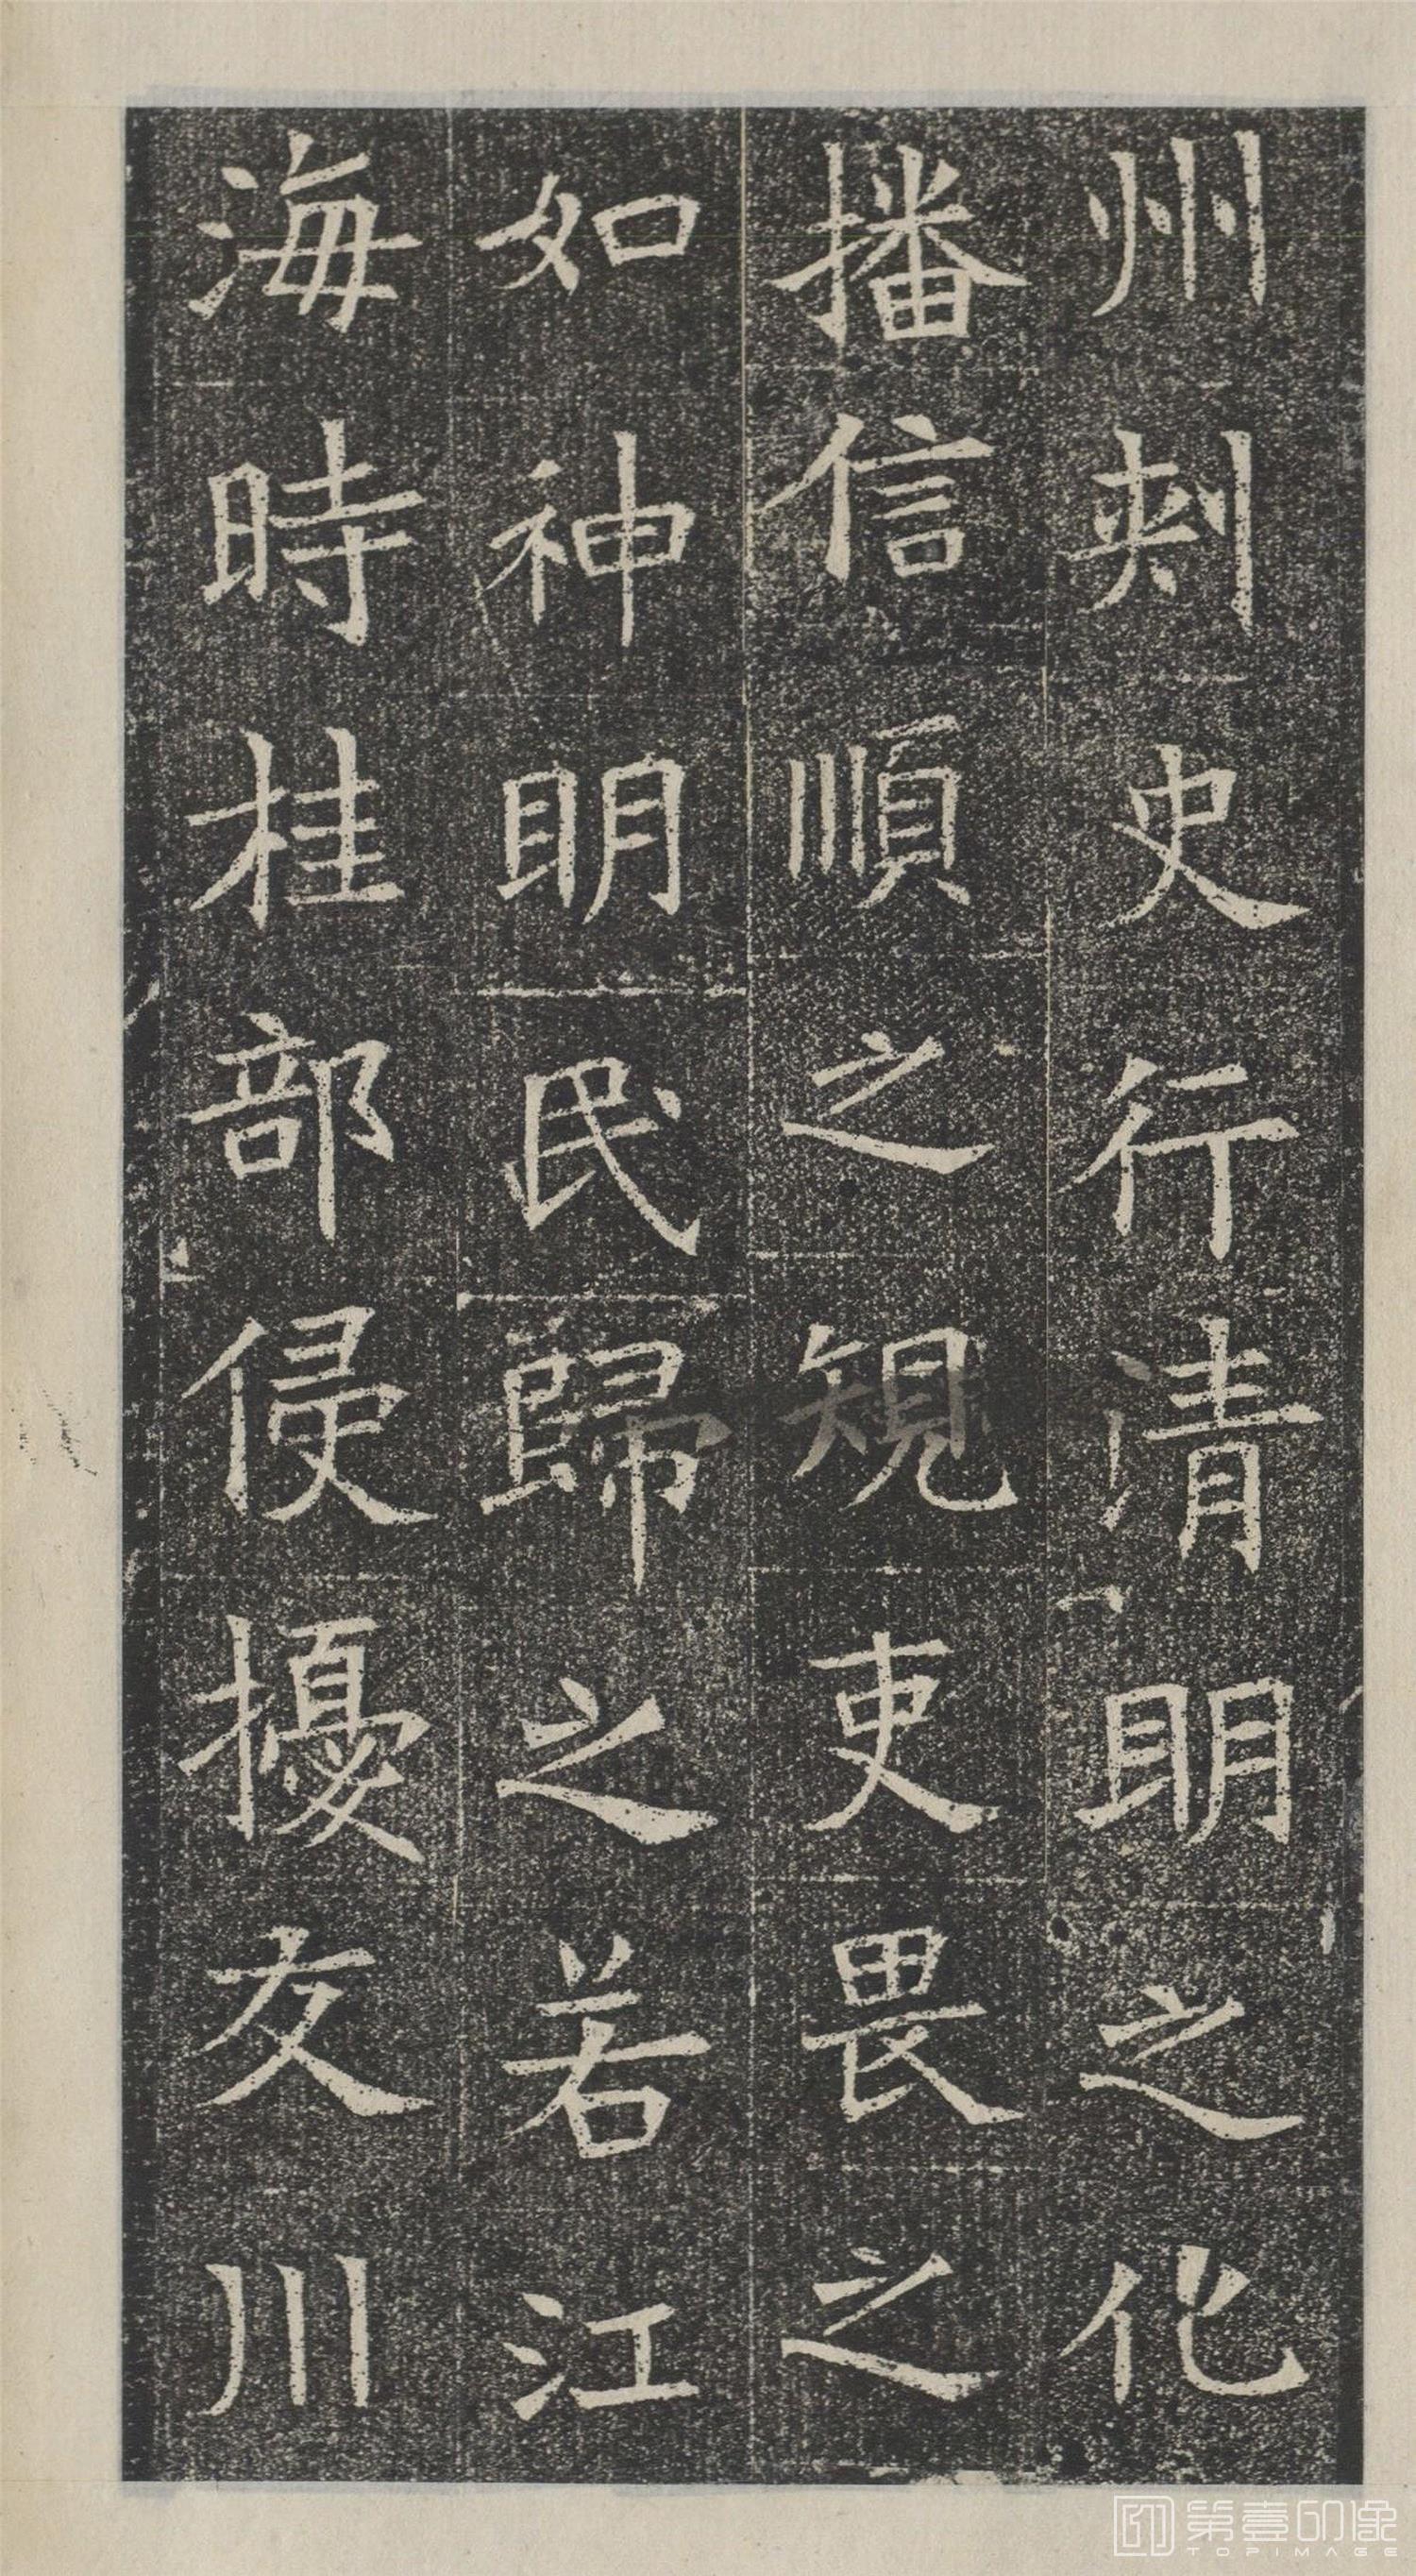 州刺史行清明之化
播信順之規吏畏之
如神明民歸之若江
海時桂部侵擾交川
第壹印像
TOPIMAGE